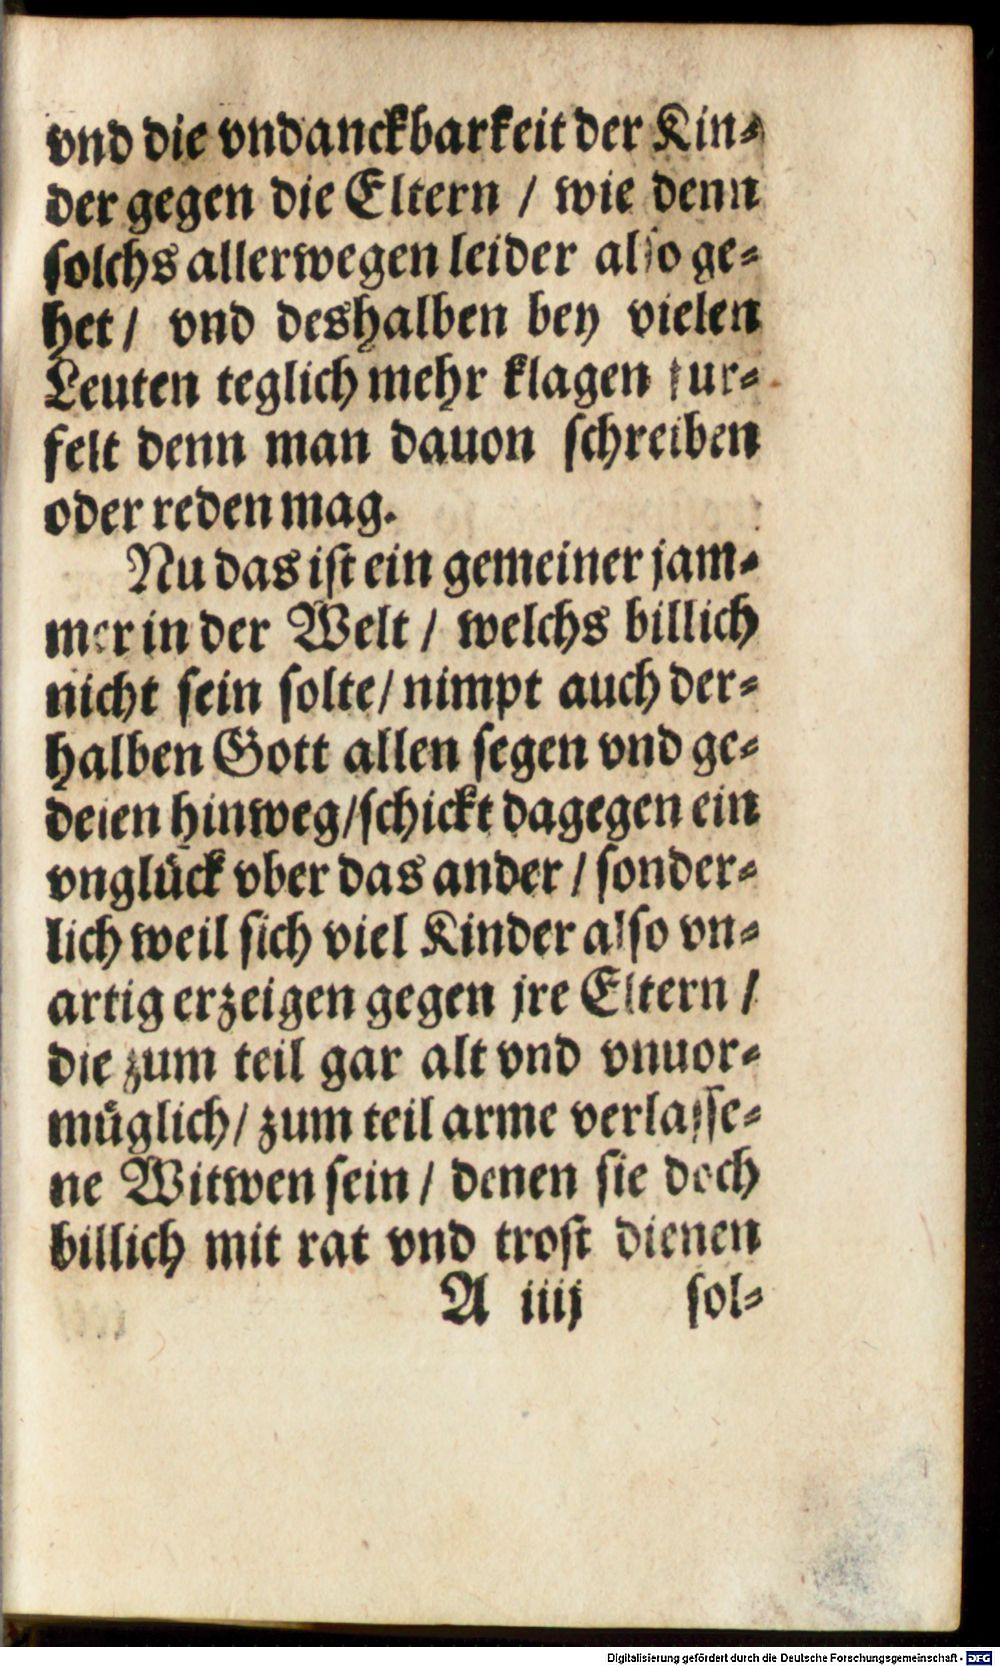 vnd die vndanckbarkeit der Kin⸗
der gegen die Eltern / wie denn
solchs allerwegen leider also ge⸗
het / vnd deshalben bey vielen
Leuten teglich mehr klagen fur⸗
felt denn man dauon schreiben
oder reden mag.
Nu das ist ein gemeiner jam⸗
mer in der Welt / welchs billich
nicht sein solte / nimpt auch der⸗
halben Gott allen segen vnd ge⸗
deien hinweg / schickt dagegen ein
vnglück vber das ander / sonder⸗
lich weil sich viel Kinder also vn⸗
artig erzeigen gegen jre Eltern /
die zum teil gar alt vnd vnuor⸗
müglich / zum teil arme verlasse⸗
ne Witwen sein / denen sie doch
billich mit rat vnd trost dienen
A iiij sol⸗
Digitalisierung gefördert durch die Deutsche Forschungsgemeinschaft - DFG